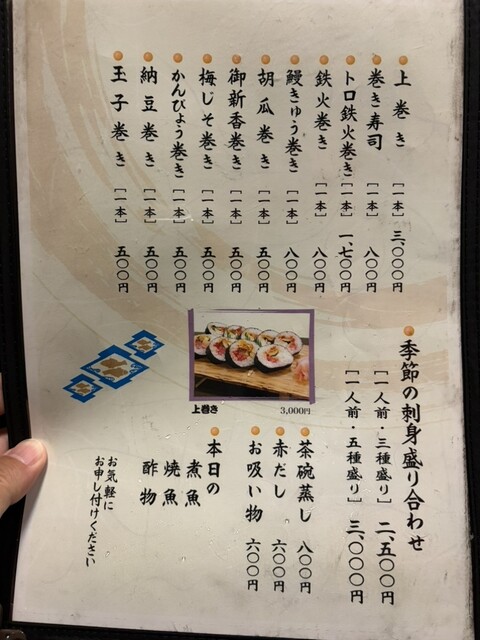 上巻き [一本] 三、〇〇〇円
巻き寿司 [一本] 八〇〇円
トロ鉄火巻き [一本] 一、七〇〇円
鉄火巻き [一本] 八〇〇円
鰻きゅう巻き [一本] 八〇〇円
胡瓜巻き [一本] 五〇〇円
御新香巻き [一本] 五〇〇円
梅じそ巻き [一本] 五〇〇円
かんぴょう巻き [一本] 五〇〇円
納豆巻き [一本] 五〇〇円
玉子巻き [一本] 五〇〇円
季節の刺身盛り合わせ
[一人前・三種盛り] 二、五〇〇円
[一人前・五種盛り] 三、〇〇〇円
上巻き 3,000円
茶碗蒸し 八〇〇円
赤だし 六〇〇円
お吸い物 六〇〇円
本日の
煮魚
焼魚
酢物
お気軽に
お申し付けください